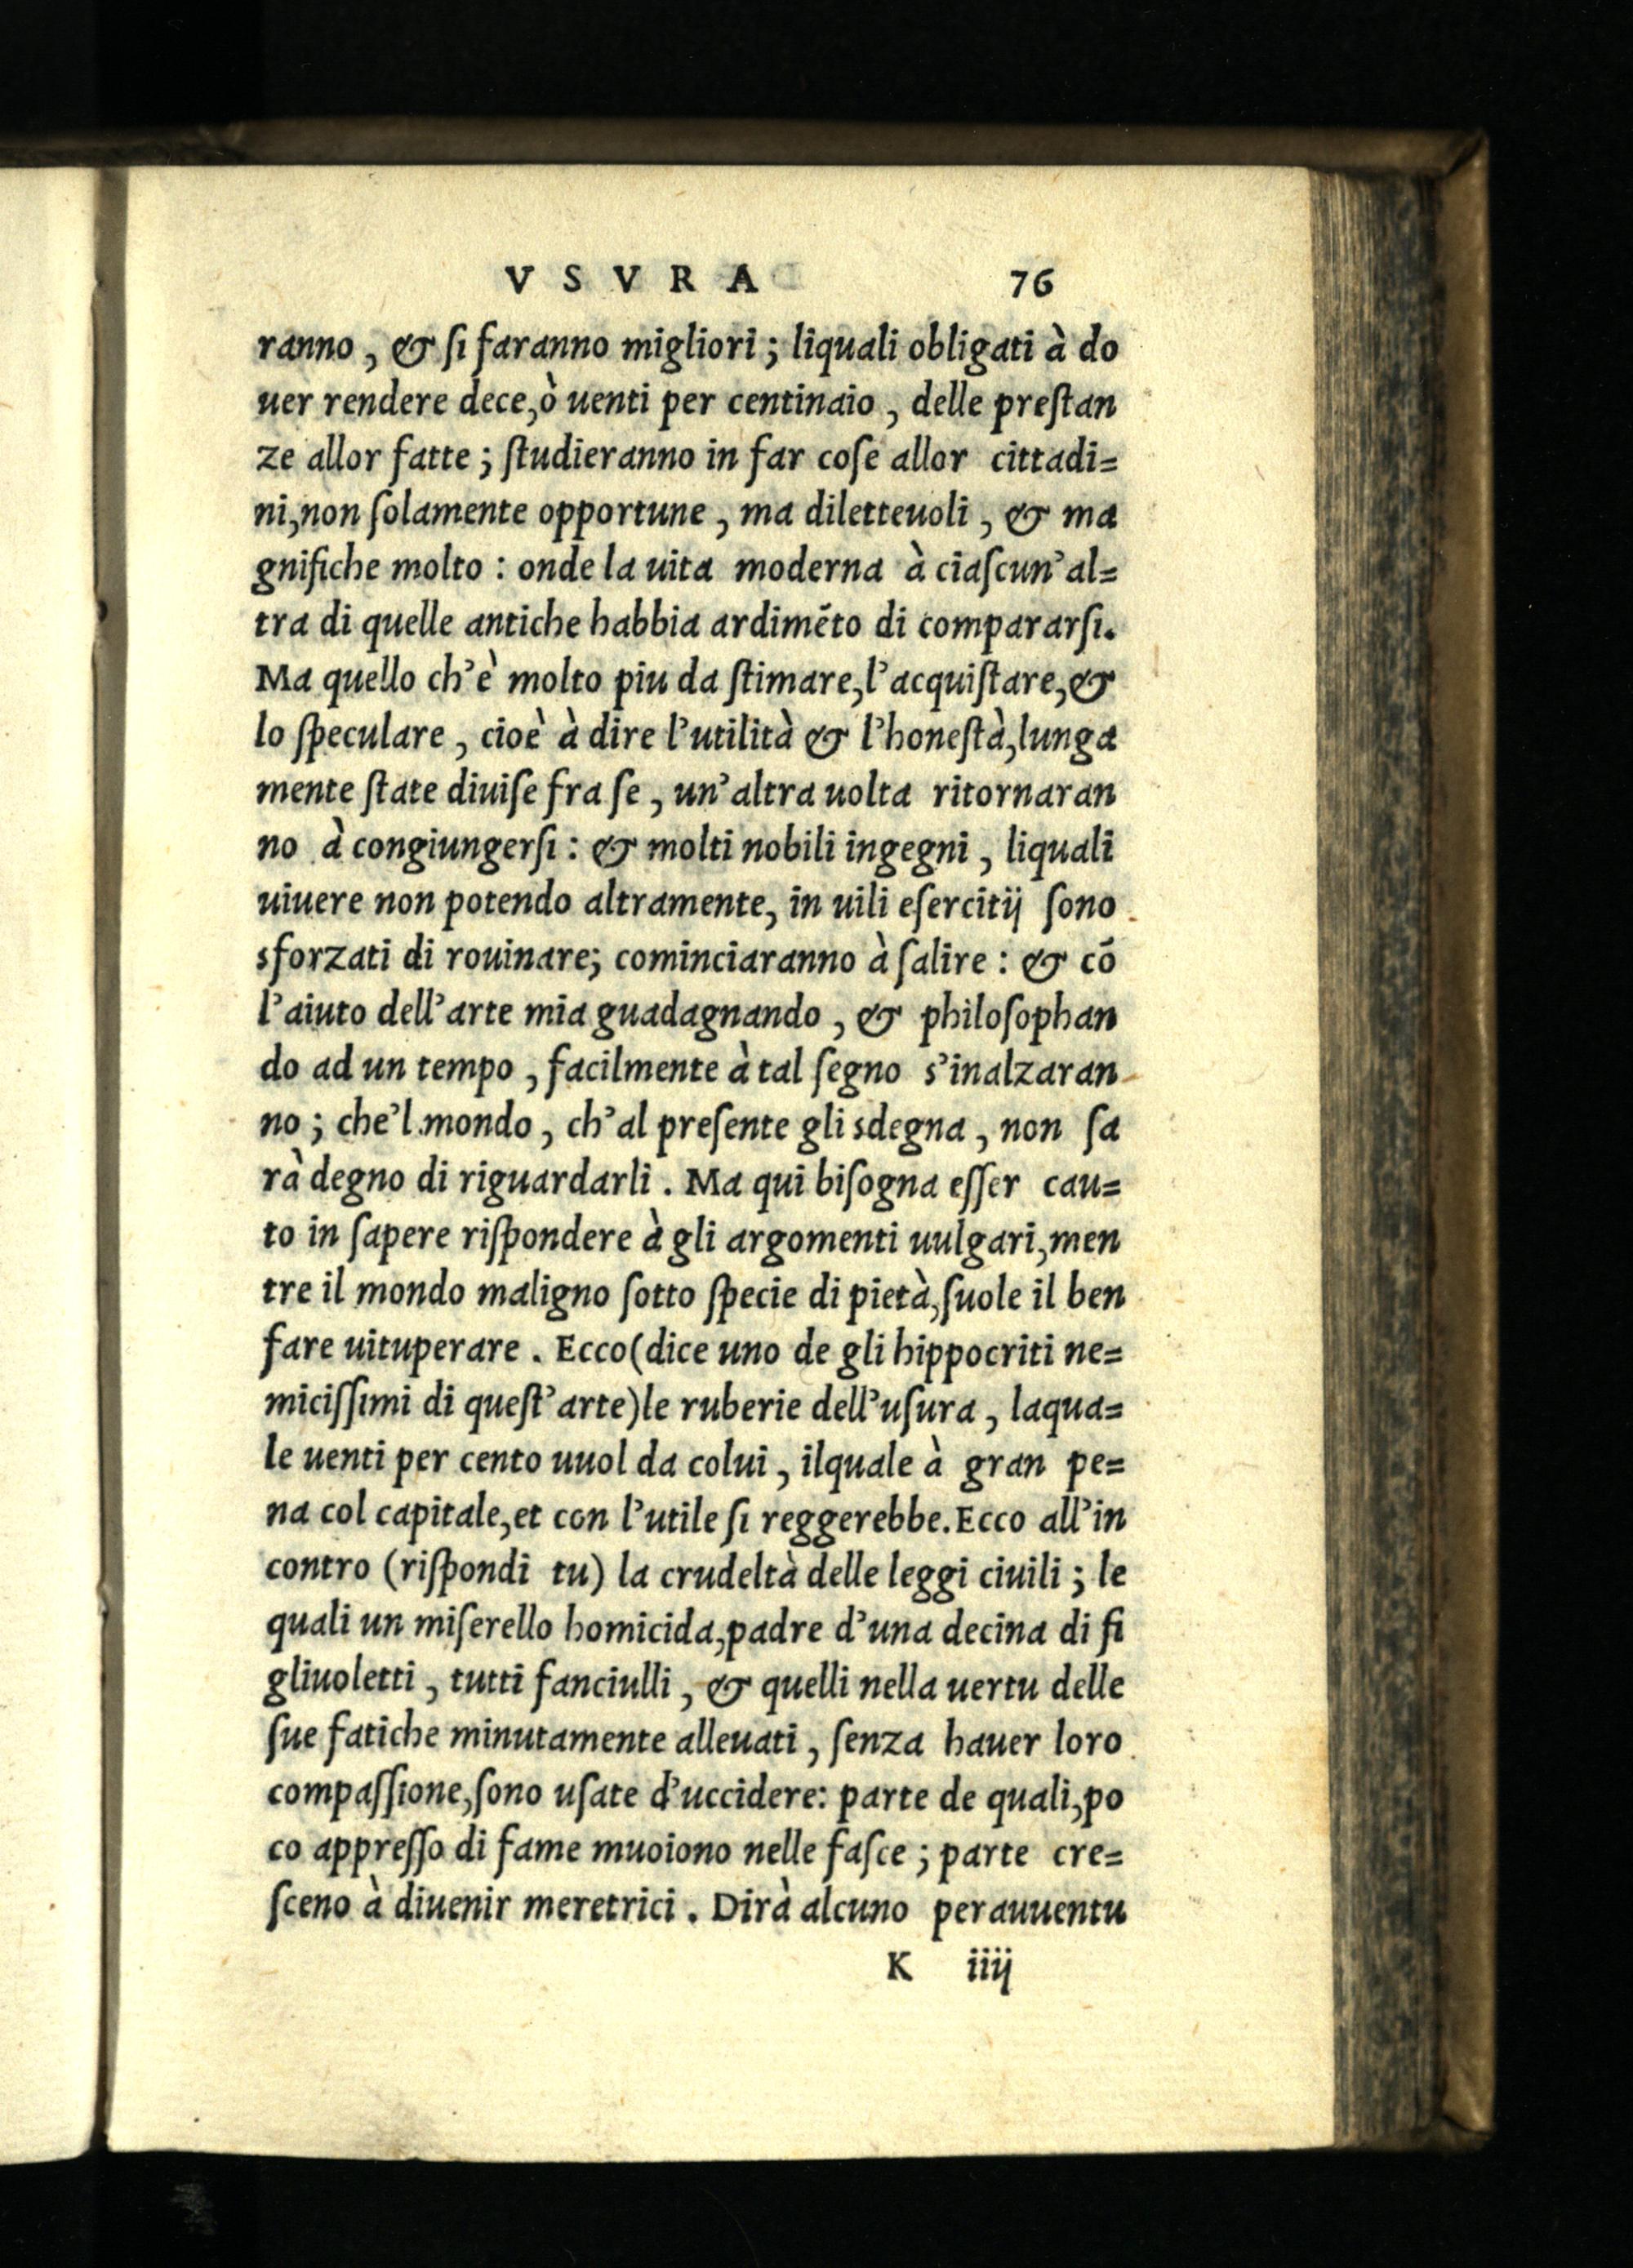 VSVRA 76
ranno, & ſi faranno migliori; liquali obligati à do
uer rendere dece,ò uenti per centinaio, delle preſtan
ze allor fatte; ſtudieranno in far coſe allor cittadi=
ni,non ſolamente opportune, ma diletteuoli, & ma
gnifiche molto: onde la uita moderna à ciaſcun'al=
tra di quelle antiche habbia ardimẽto di compararſi.
Ma quello ch'è molto piu da ſtimare,l'acquiſtare,&
lo ſpeculare, cioè à dire l'utilità & l'honeſtà,lunga
mente ſtate diuiſe fra ſe, un'altra uolta ritornaran
no à congiungerſi: & molti nobili ingegni, liquali
uiuere non potendo altramente, in uili eſercitij ſono
sforzati di rouinare; cominciaranno à ſalire: & cõ
l'aiuto dell'arte mia guadagnando, & philoſophan
do ad un tempo, facilmente à tal ſegno s'inalzaran
no; che'l mondo, ch'al preſente gli sdegna, non ſa
rà degno di riguardarli. Ma qui biſogna eſſer cau=
to in ſapere riſpondere à gli argomenti uulgari,men
tre il mondo maligno ſotto ſpecie di pietà,ſuole il ben
fare uituperare. Ecco(dice uno de gli hippocriti ne=
miciſſimi di queſt'arte)le ruberie dell'uſura, laqua=
le uenti per cento uuol da colui, ilquale à gran pe=
na col capitale,et con l'utile ſi reggerebbe.Ecco all'in
contro (riſpondi tu) la crudeltà delle leggi ciuili; le
quali un miſerello homicida,padre d'una decina di fi
gliuoletti, tutti fanciulli, & quelli nella uertu delle
ſue fatiche minutamente alleuati, ſenza hauer loro
compaſſione,ſono uſate d'uccidere: parte de quali,po
co appreſſo di fame muoiono nelle faſce; parte cre=
ſceno à diuenir meretrici. Dirà alcuno perauuentu
K iiij